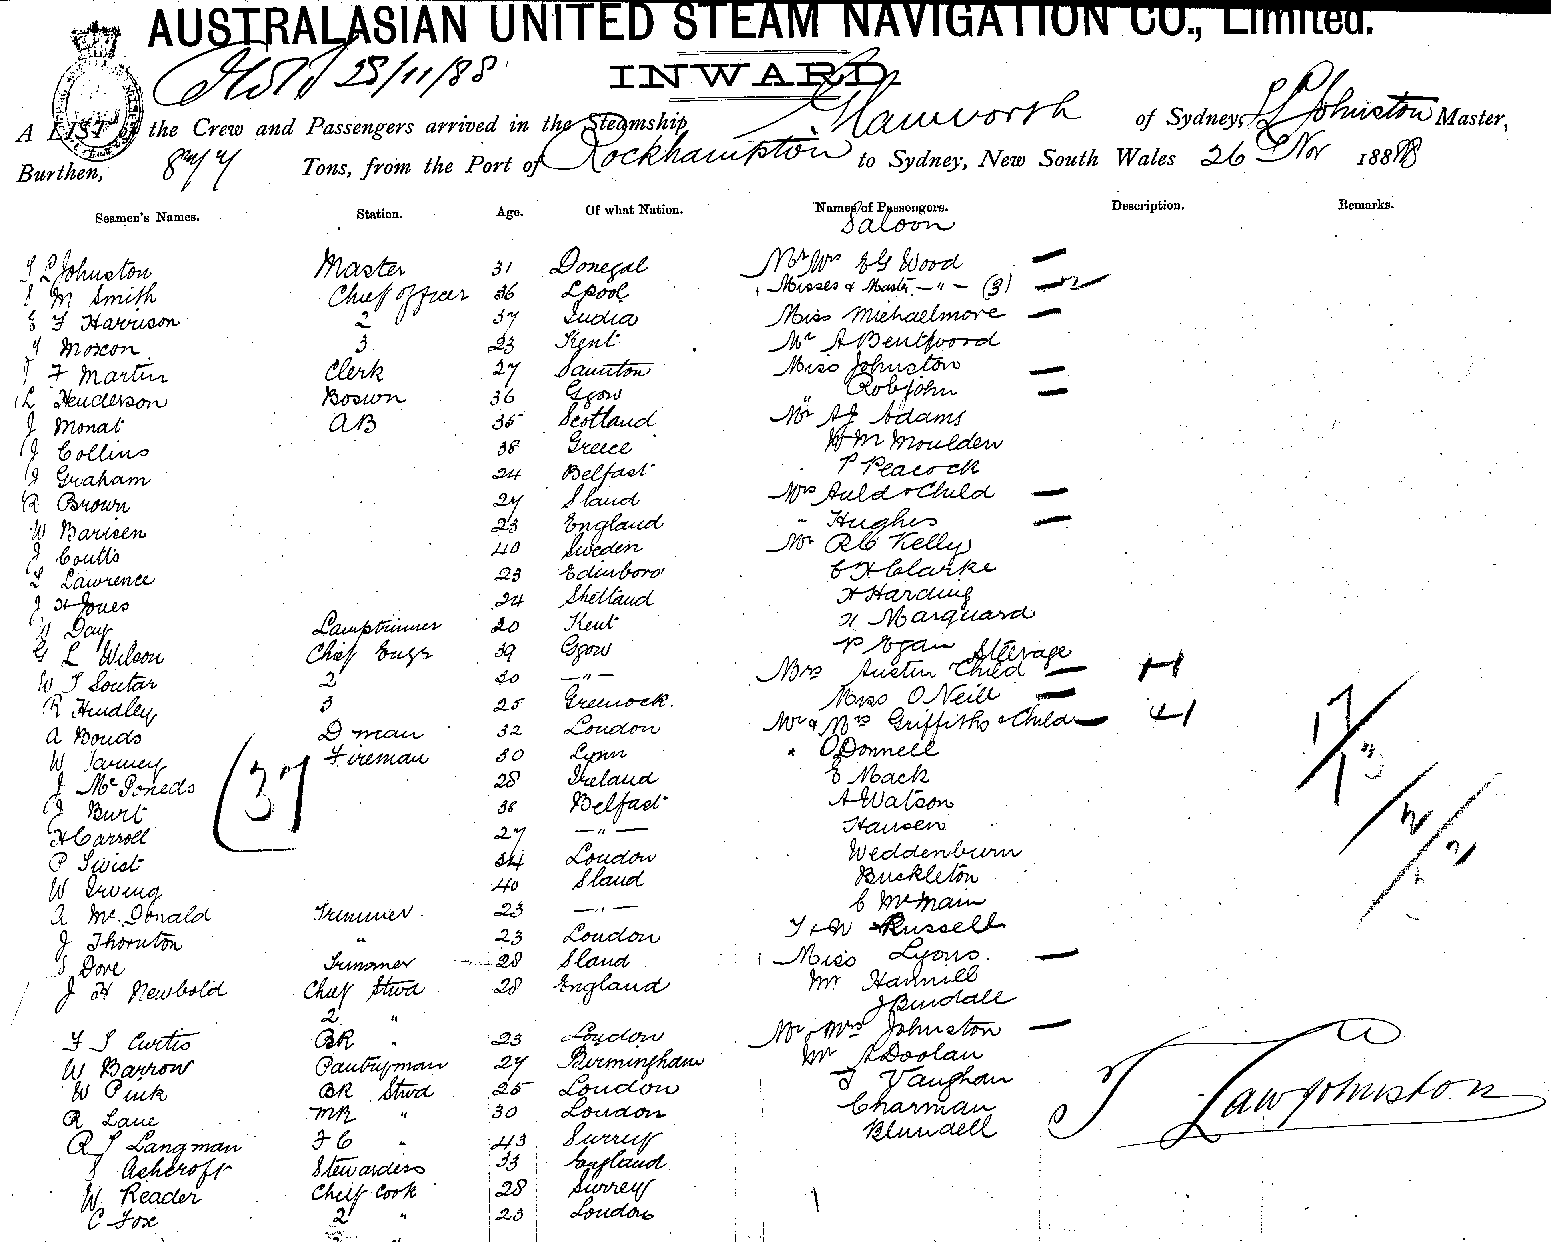 AUSTRALASIAN UNITED STEAM NAVIGATION CO., Limited.
28/11/88
INWARD
A LIST of the Crew and Passengers arrived in the Steamship Glamworth of Sydney, Johnston Master,
Burthen, Tons, from the Port of Rockhampton to Sydney, New South Wales 26 Nov 1888
Seamen's Names. Station. Age. Of what Nation. Names of Passengers. Description. Remarks.
Saloon
Johnston Master 31 Donegal Mr Mrs E G Wood
M Smith Chief Officer 36 Lpool Misses & Mastr - " - (3)
F Harrison 2 37 India Miss Michaelmore
Moxon 3 23 Kent Mr A Bentwood
F Martin Clerk 27 Miss Johnston
Henderson Boswn 36 Ggow " Robjohn
J Monat AB 35 Scotland Mr A J Adams
J Collins 38 Greece W M Moulden
J Graham 24 Belfast P Peacock
R Brown 27 Sland Mrs Auld & Child
W Barisen 23 England " Hughes
J Coutts 40 Sweden Mr R C Kelly
Lawrence 23 Edinboro C H Clarke
J H Jones 24 Shetland H Harding
Day Lamptrimmer 20 Kent H Marquard
G L Wilson Chief Engr 39 Ggow P Egan
Steerage
W J Soutar 2 30 - " - Mrs Austin Child
R Hindley 3 25 Greenock. Miss O'Neill
A Bonds D man 32 London Mr & Mrs Griffiths & Child
W Fireman 30 Lynn " O'Donnell
J 28 Ireland E Mack
J Burt 38 Belfast A Watson
(37)
H Carroll 27 - " - Hansen
P Swist 34 London Weddenburn
W Irving 40 Sland Buckleton
A McDonald Trimmer 23 - " - C McMain
J Thornton " 23 London T & W Russell
Dove Trimmer 28 Sland Miss Lyons
J H Newbold Chief Stwd 28 England Mr Hannill
2 " J Bindall
F J Curtis BR " 23 London Mr & Mrs Johnston
W Barrow Pantryman 27 Birmingham Mr A Doolan
W Pink BR Stwd 25 London J Vaughan
R Lane MR " 30 London Charman
R J Langman F C " 43 Surrey Blundell
Ashcroft Stewardess 33 England
W Reader Cheif Cook 28 Surrey
C Fox 2 " 23 London